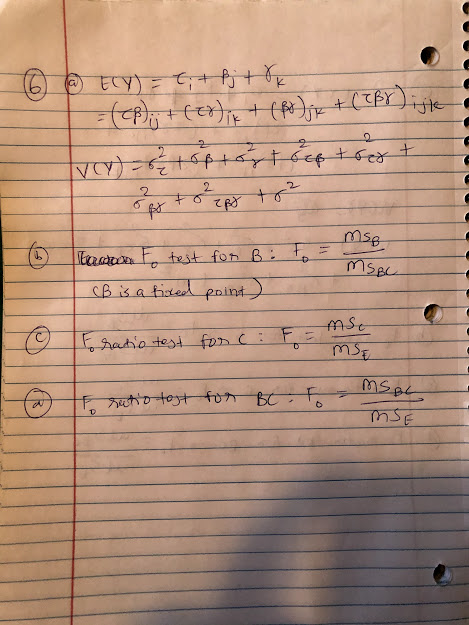 ⑥ ⓐ E(Y) = τi + βj + γk
= (τβ)ij + (τγ)ik + (βγ)jk + (τβγ)ijk
V(Y) = σ²τ + σ²β + σ²γ + σ²τβ + σ²τγ +
σ²βγ + σ²τβγ + σ²
ⓑ F₀ test for B : F₀ = MSB / MSBC
(B is a fixed point)
ⓒ F₀ ratio test for C : F₀ = MSC / MSE
ⓓ F₀ ratio test for BC : F₀ = MSBC / MSE